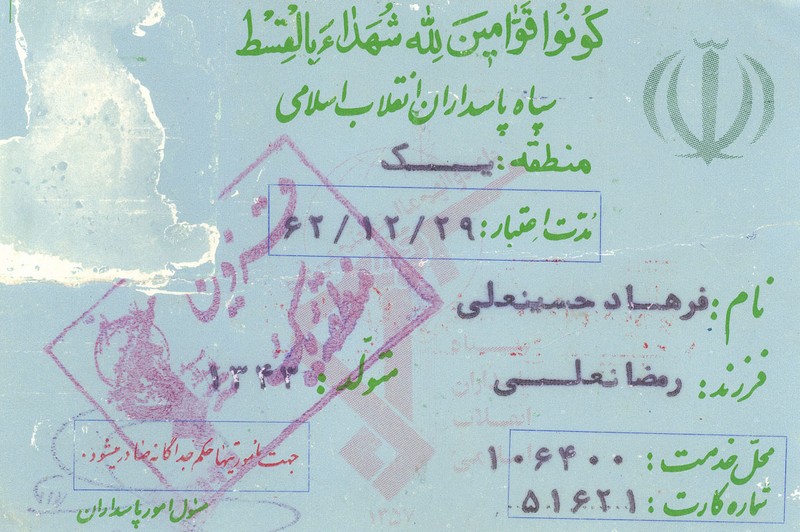 كُونُوا قَوَّامِينَ لِلّٰهِ شُهَدَاءَ بِالْقِسْطِ
سپاه پاسداران انقلاب اسلامی
منطقه: یک
مدّت اعتبار: ۶۲/۱۲/۲۹
نام: فرهاد حسینعلی
فرزند: رمضانعلی
متولّد: ۱۳۴۳
سپاه
پاسداران
انقلاب
اسلامی
۱۳۵۷
محلّ خدمت: ۱۰۶۴۰۰
شماره کارت: ۵۱۶۲۱
جهت مأموریتها حکم جداگانه صادر میشود.
مسئول امور پاسداران